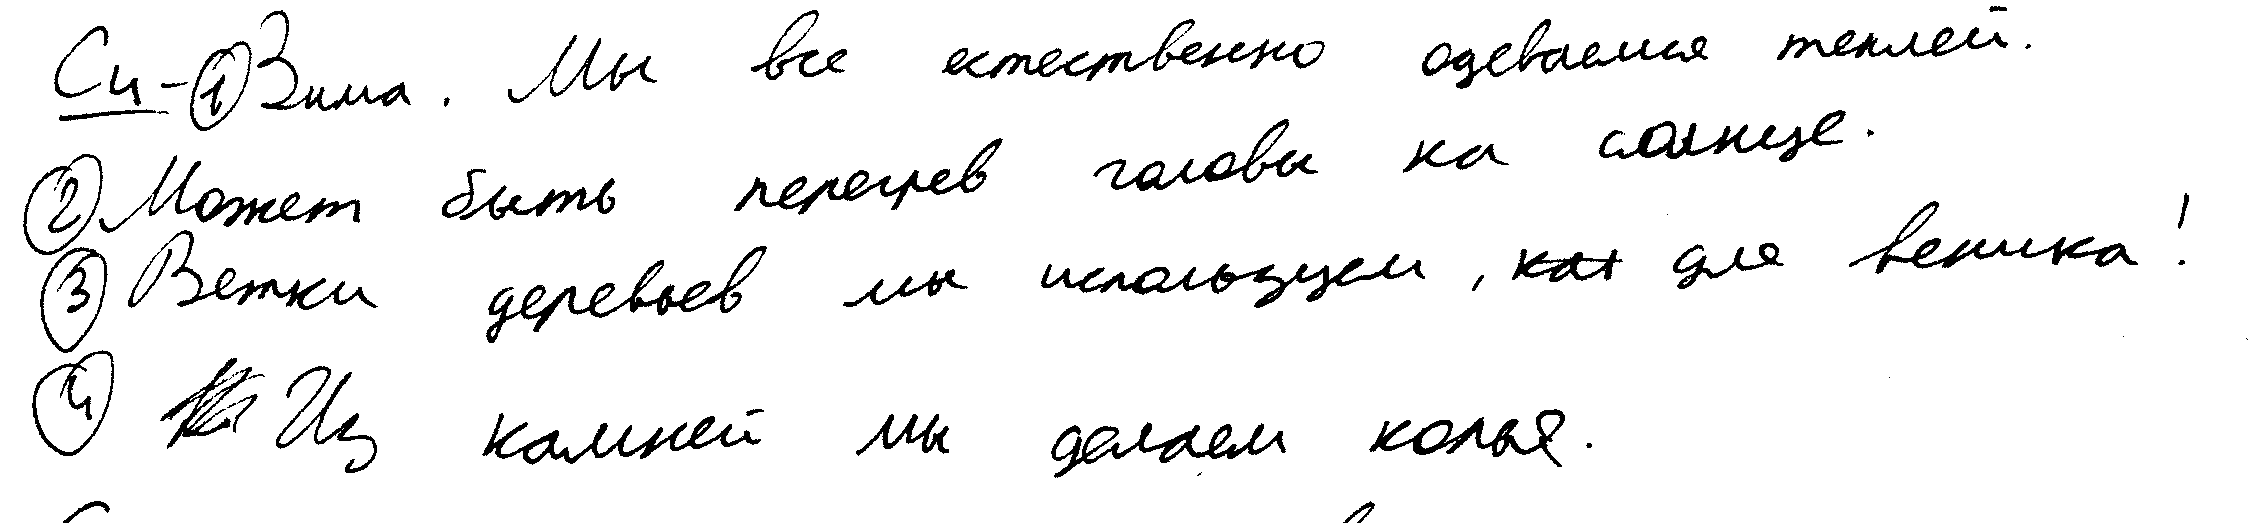 Сц - ① Зима. Мы все естественно одеваемся теплей.
② Может быть перегрев головы на солнце.
③ Ветки деревьев мы используем, как для веника!
④ Из камней мы делаем копья.